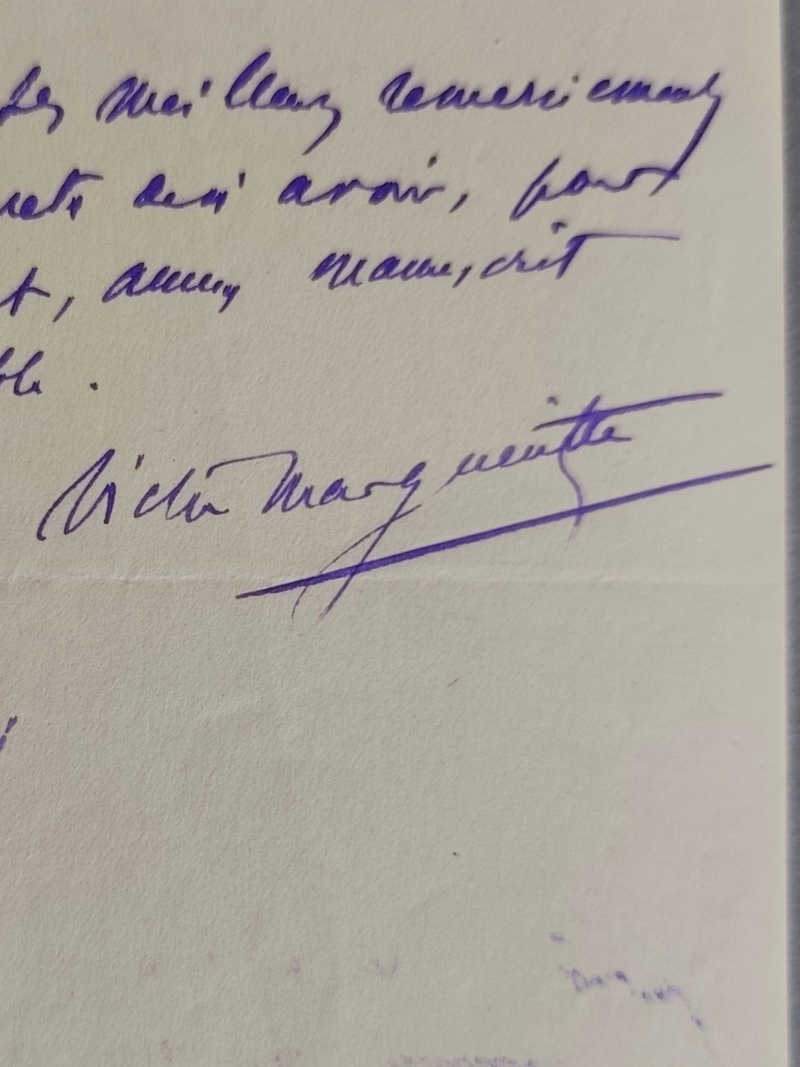 les meilleurs remerciements
regrets de n'avoir, pour
t, aucun manuscrit
ble.
Victor Margueritte